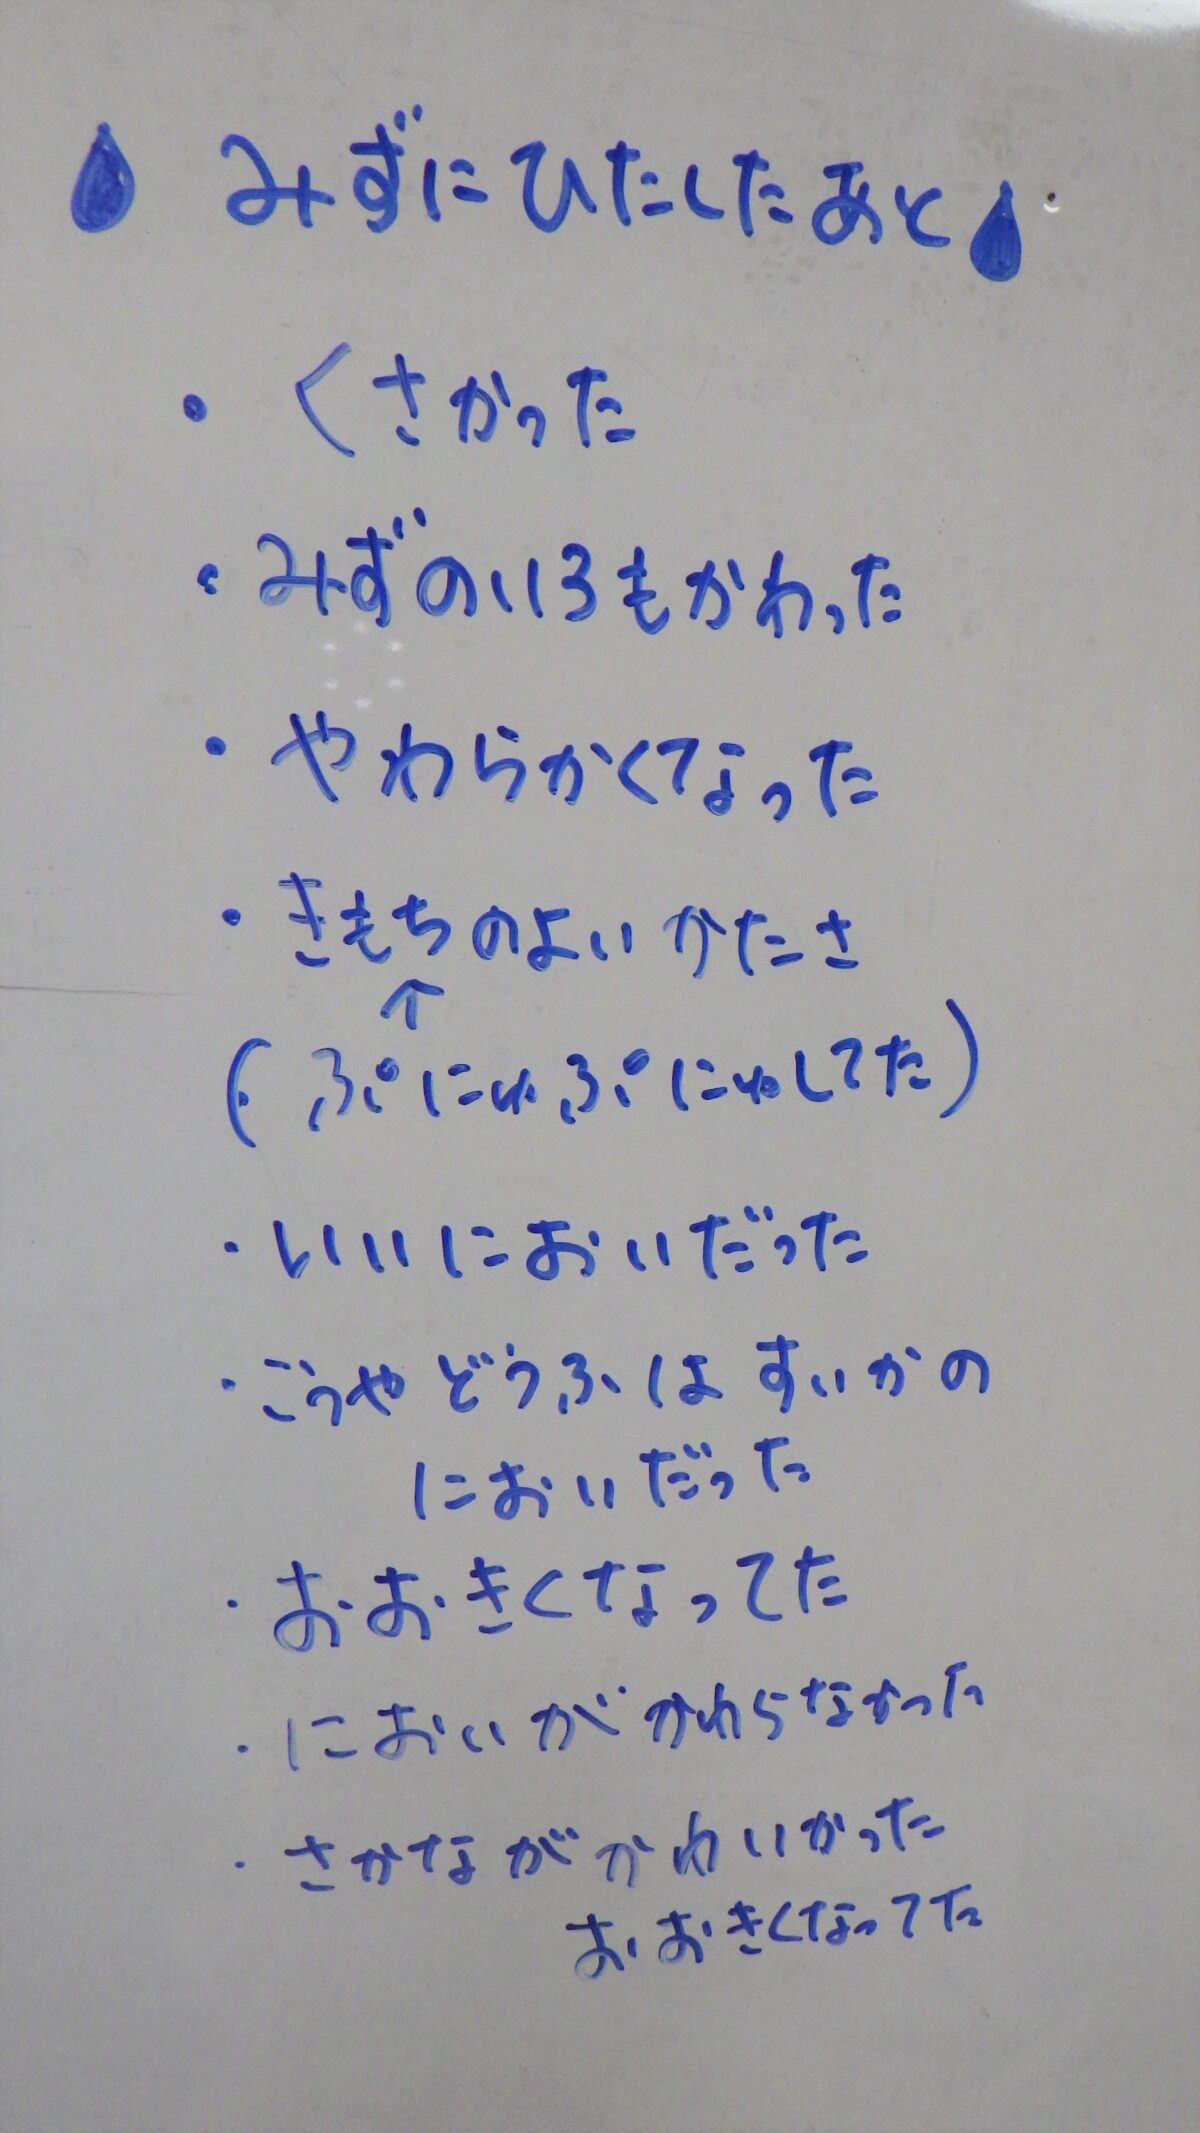 みずにひたしたあと
・くさかった
・みずのいろもかわった
・やわらかくなった
・きもちのよいかたさ
↑
(ぷにゅぷにゅしてた)
・いいにおいだった
・こうやどうふはすいかの
においだった
・おおきくなってた
・においがかわらなかった
・さかながかわいかった
おおきくなってた